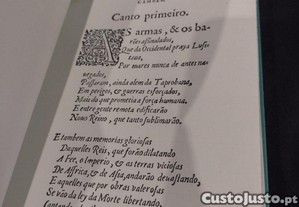 Canto primeiro.
AS armas, & os ba-
rões assinalados,
Que da Occidental praya Lusi-
tana,
Por mares nunca de antes na-
uegados,
Passaram, ainda alem da Taprobana,
Em perigos, & guerras esforçados,
Mais do que prometia a força humana.
E entre gente remota edificarão
Nouo Reino, que tanto sublimarão.
E tambem as memorias gloriosas
Daquelles Reis, que forão dilatando
A Fee, o imperio, & as terras viciosas
De Affrica, & de Asia, andarão deuastando,
E aquelles que por obras valerosas
Se vão da ley da Morte libertando.
CustoJusto.pt